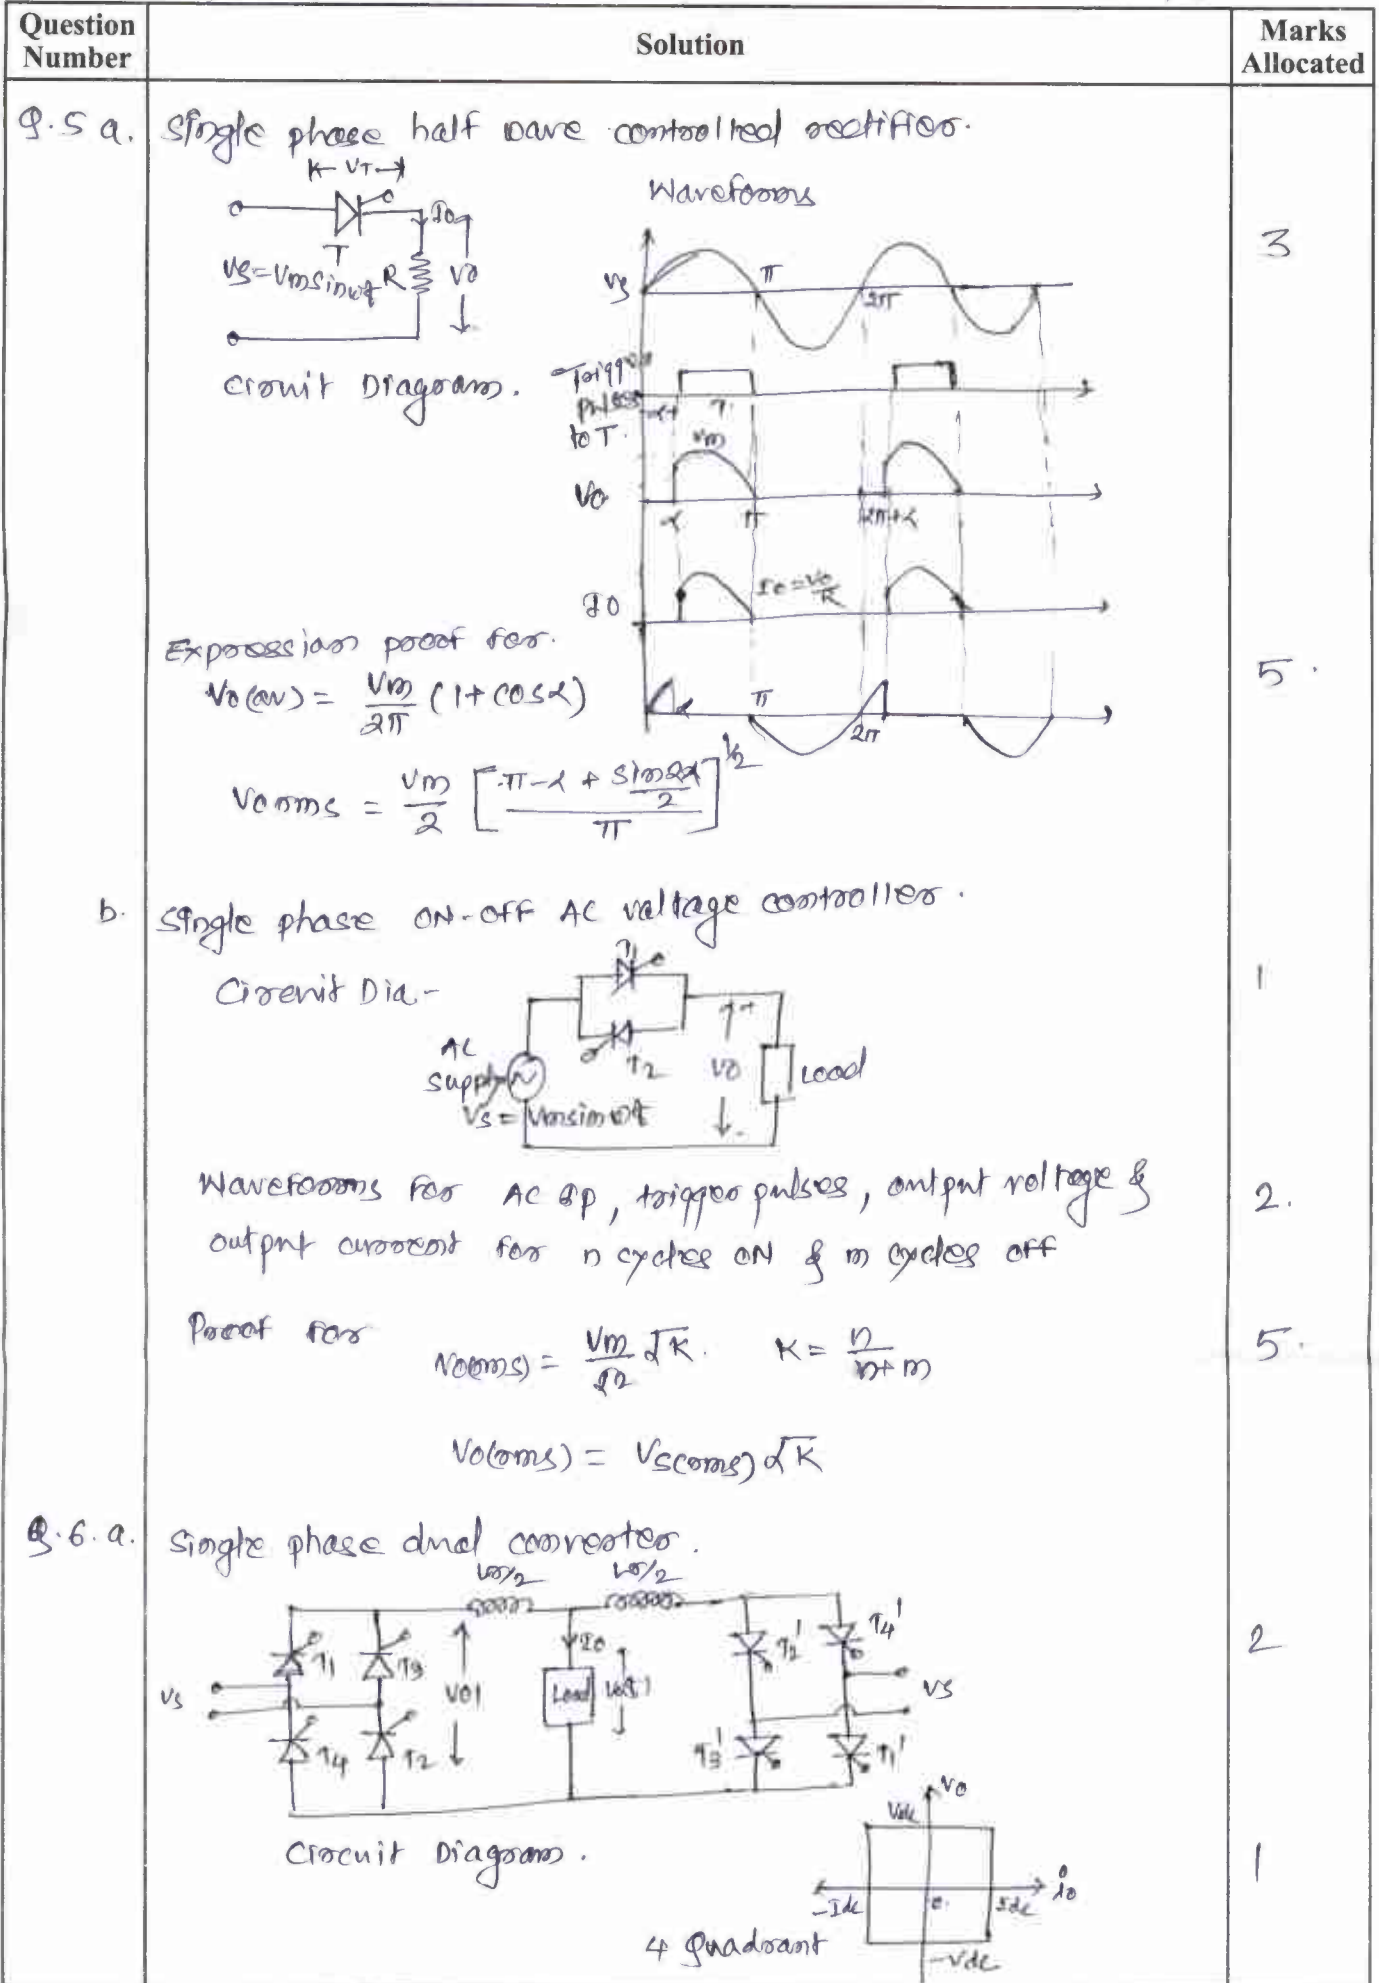 Question Number
Solution
Marks Allocated
Q.5 a. Single phase half wave controlled rectifier.
VT
Waveforms
3
Io
T
vs=Vmsinωt R Vo
Circuit Diagram.
vs
π
2π
Trigger
pulses
to T.
α
Vm
Vo
α π 2π+α
Io
Io=Vo/R
Expression proof for.
5.
Vo(av) = Vm/2π (1+cosα)
α π 2π
Vorms = Vm/2 [(π-α + sin2α/2)/π]^1/2
b. Single phase ON-OFF AC voltage controller.
Circuit Dia.-
1
T1
AC
supply
T2 Vo Load
Vs = Vmsinωt
Waveforms for AC ip, trigger pulses, output voltage &
2.
output current for n cycles ON & m cycles off
Proof for
Vo(rms) = Vm/√2 √K. K = n/n+m
5.
Vo(rms) = Vs(rms) √K
Q.6.a. Single phase dual converter.
Lr/2 Lr/2
T1 T3 Vo1 Io Load T2' T4'
2
Vs Vs
T4 T2 T3' T1'
Circuit Diagram.
1
Vo
Vdc
-Idc 0. Idc io
4 Quadrant
-Vdc